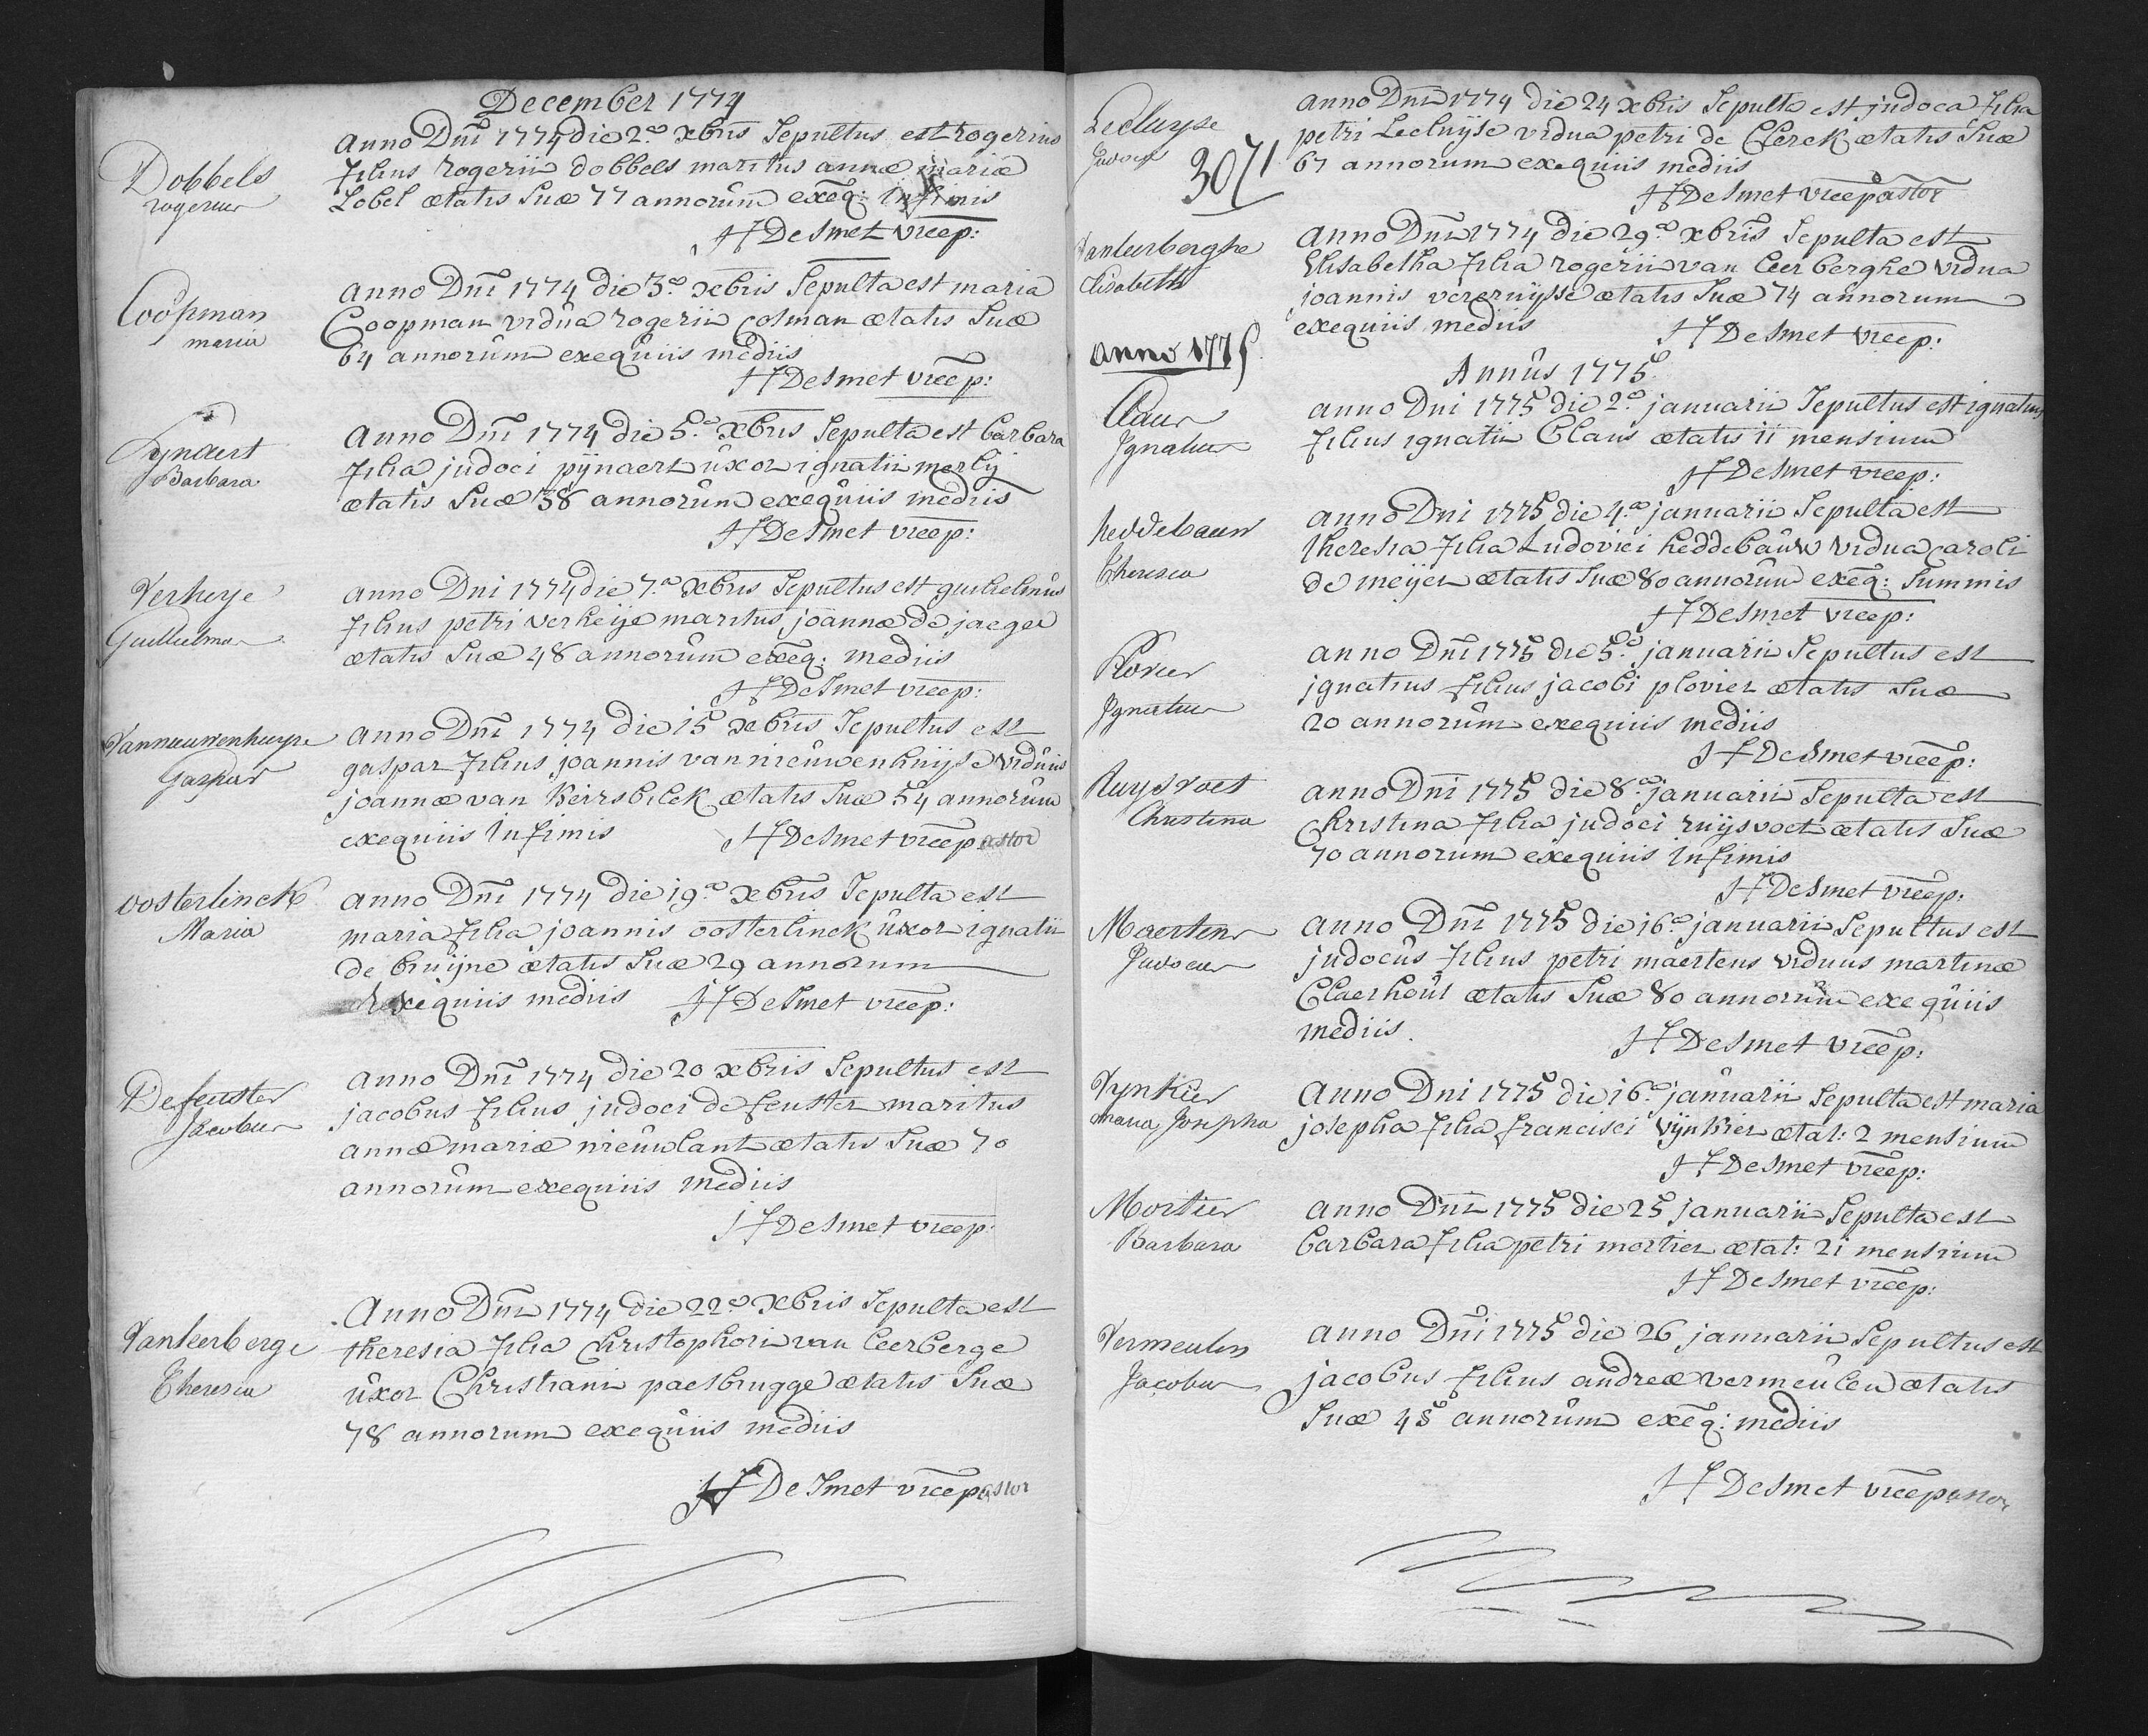 December 1774
Dobbels
rogerius
Anno Dni 1774 die 2a xbris Sepultus est rogerius
filius rogerii dobbels maritus annæ mariæ
Lobel ætatis suæ 77 annorum exeq: infimis
JF DeSmet vicep:
Coopman
maria
Anno Dni 1774 die 3a xbris Sepulta est maria
Coopman vidua rogerii colman ætatis suæ
64 annorum exequiis mediis
JF DeSmet vicep:
Pynaert
Barbara
Anno Dni 1774 die 5a xbris Sepulta est barbara
filia judoci pijnaert uxor ignatii merlij
ætatis suæ 38 annorum exequiis mediis
JF DeSmet vicep:
Verheye
Guillielmus
Anno Dni 1774 die 7a xbris Sepultus est guilielmus
filius petri verheije maritus joannæ de jaeger
ætatis suæ 48 annorum exeq: mediis
JF DeSmet vicep:
Vannieuwenhuyse
Gaspar
Anno Dni 1774 die 15 xbris Sepultus est
gaspar filius joannis van nieuwenhuijse viduus
joannæ van Keirsbilck ætatis suæ 54 annorum
exequiis infimis JF DeSmet vicepastor
oosterlinck
Maria
Anno Dni 1774 die 19a xbris Sepulta est
maria filia joannis oosterlinck uxor ignatii
de bruijne ætatis suæ 29 annorum
exequiis mediis JF DeSmet vicep:
Defeuster
Jacobus
Anno Dni 1774 die 20 xbris Sepultus est
jacobus filius judoci de feuster maritus
annæ mariæ nieuwlant ætatis suæ 70
annorum exequiis mediis
JF DeSmet vicep:
Vanleerberge
Theresia
Anno Dni 1774 die 22a xbris Sepulta est
theresia filia Christophori van leerberge
uxor Christiani paesbrugge ætatis suæ
78 annorum exequiis mediis
JF DeSmet vicepastor
Lecluyse
Judoca
3071
Anno Dni 1774 die 24 xbris Sepulta est judoca filia
petri Lecluijse vidua petri de Clerck ætatis suæ
67 annorum exequiis mediis
JF DeSmet vicepastor
Vanleerberghe
Elisabeth
Anno Dni 1774 die 29a xbris Sepulta est
Elisabetha filia rogerii van leerberghe vidua
joannis vercruijsse ætatis suæ 74 annorum
exequiis mediis JF DeSmet vicep:
anno 1775
Annus 1775
Claus
Ignatius
Anno Dni 1775 die 2a januarii Sepultus est ignatius
filius ignatii Claus ætatis 11 mensium
JF DeSmet vicep:
heddebauw
Theresia
Anno Dni 1775 die 4a januarii Sepulta est
theresia filia Ludovici heddebauw vidua caroli
de meijer ætatis suæ 80 annorum exeq: Summis
JF DeSmet vicep:
Plovier
Ignatius
Anno Dni 1775 die 5a januarii Sepultus est
ignatius filius jacobi plovier ætatis suæ
20 annorum exequiis mediis
JF DeSmet vicep:
Ruysvoet
Christina
Anno Dni 1775 die 8a januarii Sepulta est
Christina filia judoci ruijsvoet ætatis suæ
70 annorum exequiis infimis
JF DeSmet vicep:
Maertens
Judocus
Anno Dni 1775 die 16a januarii Sepultus est
judocus filius petri maertens viduus martinæ
Claerhout ætatis suæ 80 annorum exequiis
mediis. JF DeSmet vicep:
Vynkier
maria Josepha
Anno Dni 1775 die 16a januarii Sepulta est maria
josepha filia francisci Vijnkier ætat: 2 mensium
JF DeSmet vicep:
Mortier
Barbara
Anno Dni 1775 die 25 januarii Sepulta est
barbara filia petri mortier ætat: 21 mensium
JF DeSmet vicep:
Vermeulen
Jacobus
Anno Dni 1775 die 26 januarii Sepultus est
jacobus filius andreæ vermeulen ætatis
suæ 45 annorum exeq: mediis
JF DeSmet vicepastor